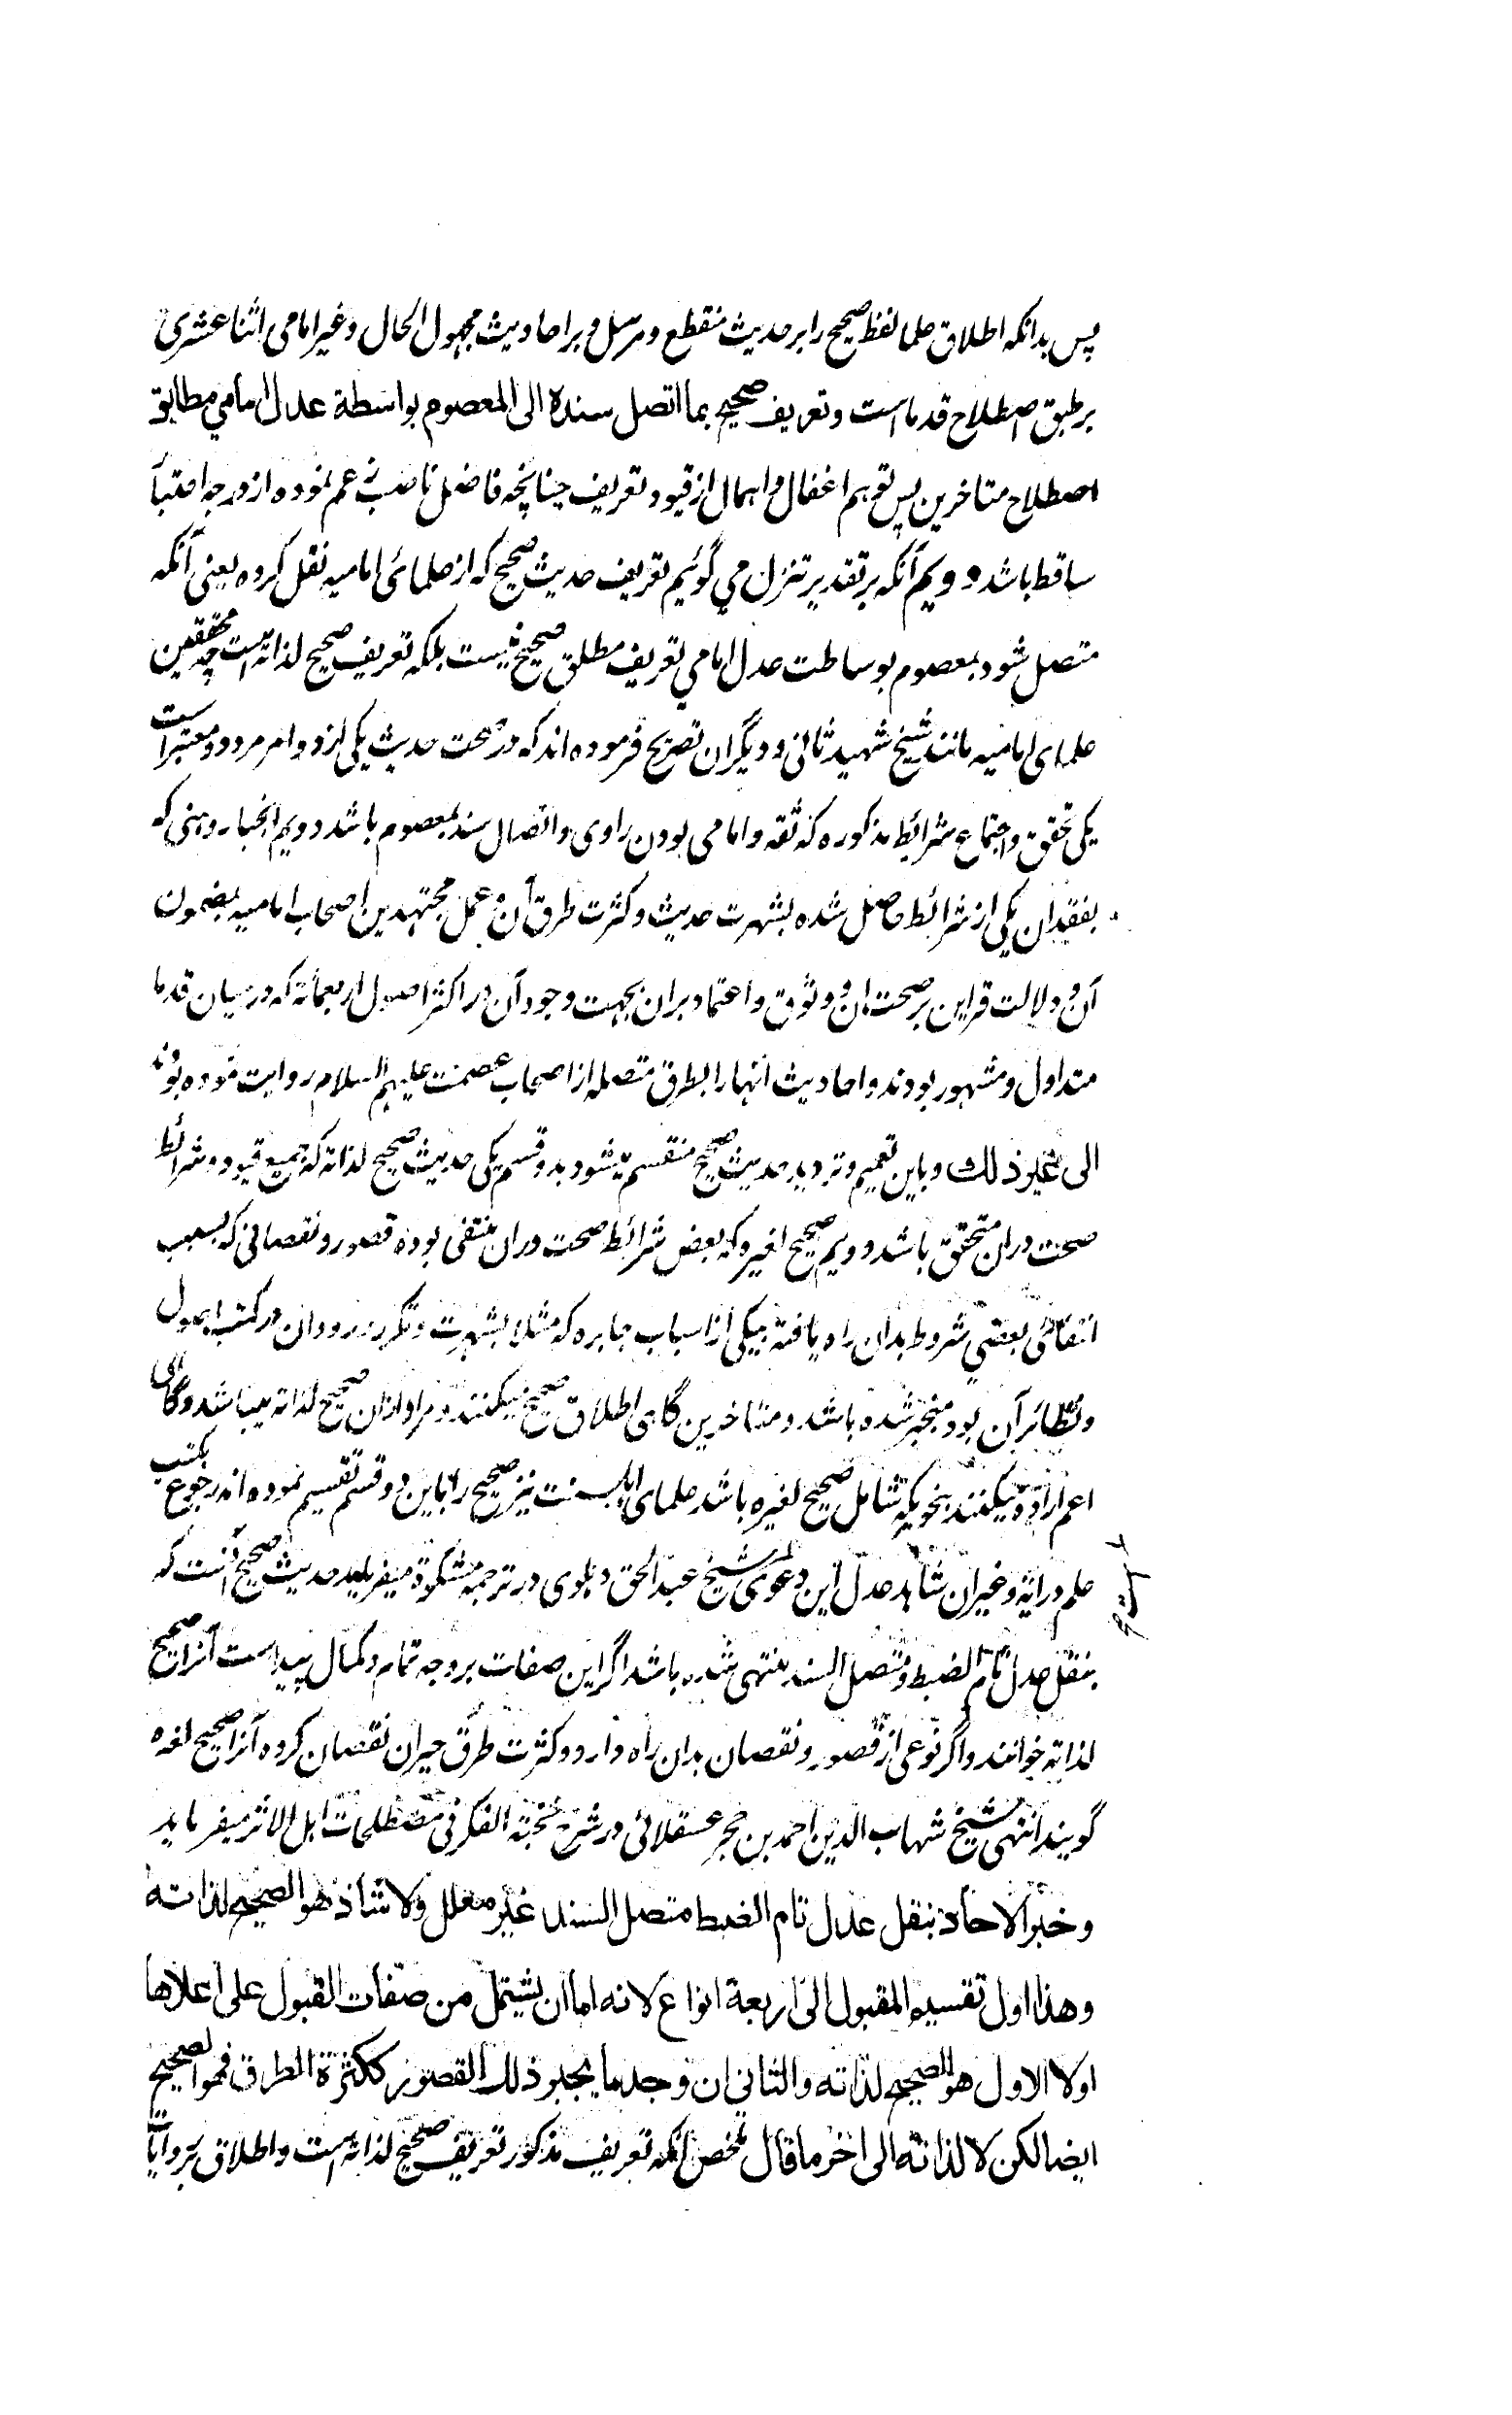 پس بدانکه اطلاق علما لفظ صحیح را بر حدیث منقطع و مرسل و بر احادیث مجهول الحال و غیر امامی اثنا عشری
بر طبق اصطلاح قدما است و تعریف صحیح بما اتصل سنده الی المعصوم بواسطة عدل امامی مطابق
اصطلاح متاخرین پس توهم اغفال و اهمال از قیود تعریف چنانچه فاضل ناصب زعم نموده از درجه اعتبار
ساقط باشد دویم آنکه بر تقدیر تنزل می گوئیم تعریف حدیث صحیح که از علمائی امامیه نقل کرده یعنی آنکه
متصل شود بمعصوم بوساطت عدل امامی تعریف مطلق صحیح نیست بلکه تعریف صحیح لذاته است چه محققین
علمای امامیه مانند شیخ شهید ثانی و دیگران تصریح فرموده اند که در صحت حدیث یکی از دو امر مردود معتبر است
یکی تحقق و اجتماع شرائط مذکوره که ثقه و امامی بودن راوی و اتصال سند بمعصوم باشد دویم انجبار وهنی که
بفقدان یکی از شرائط حاصل شده بشهرت حدیث و کثرت طرق آن و عمل مجتهدین اصحاب امامیه بمضمون
آن و دلالت قراین بر صحت ان و وثوق و اعتماد بران بجهت وجود آن در اکثر اصول اربعمائة که در میان قدما
متداول و مشهور بودند و احادیث انها را بطرق متصله از اصحاب عصمت علیهم السلام روایت نموده بودند
الی غیر ذلک و باین تعمیم و تردید حدیث صحیح منقسم میشود بدو قسم یکی حدیث صحیح لذاته که جمیع قیود و شرائط
صحت دران متحقق باشد دویم صحیح لغیره که بعض شرائط صحت دران منتفی بوده قصور و نقصانی که بسبب
انتفائی بعضی شروط بدان راه یافته بیکی از اسباب جابره که مثلا بشهرت و تکرر ورود ان در کتب اصول
و نظائر آن بود منجبر شده باشد و متاخرین گاهی اطلاق صحیح میکنند و مراد ازان صحیح لذاته میباشد و گاهی
اعم اراده میکنند بنحویکه شامل صحیح لغیره باشد علمای اهل سنت نیز صحیح را باین دو قسم تقسیم نموده اند رجوع بکتب
علم درایة و غیران شاهد عدل این دعوی شیخ عبد الحق دهلوی در ترجمه مشکوة میفرماید حدیث صحیح آنست که
بنقل عدل تام الضبط و متصل السند منتهی شده باشد اگر این صفات بر وجه تمام و کمال پیداست آنرا صحیح
لذاته خوانند و اگر نوعی از قصور و نقصان بدان راه دارد و کثرت طرق جبران نقصان کرده آنرا صحیح لغیره
گویند انتهی شیخ شهاب الدین احمد بن حجر عسقلانی در شرح نخبة الفکر فی مصطلحات اهل الاثر میفرماید
و خبر الاحاد بنقل عدل تام الضبط متصل السند غیر معلل ولا شاذ هو الصحیح لذاته
وهذا اول تقسیم المقبول الی اربعة انواع لانه اما ان یشتمل من صفات القبول علی اعلاها
اولا الاول هو الصحیح لذاته والثانی ان وجد ما یجبر ذلک القصور ککثرة الطرق فهو الصحیح
ایضا لکن لا لذاته الی اخر ما قال ملخص انکه تعریف مذکور تعریف صحیح لذاته است و اطلاق بر روایات